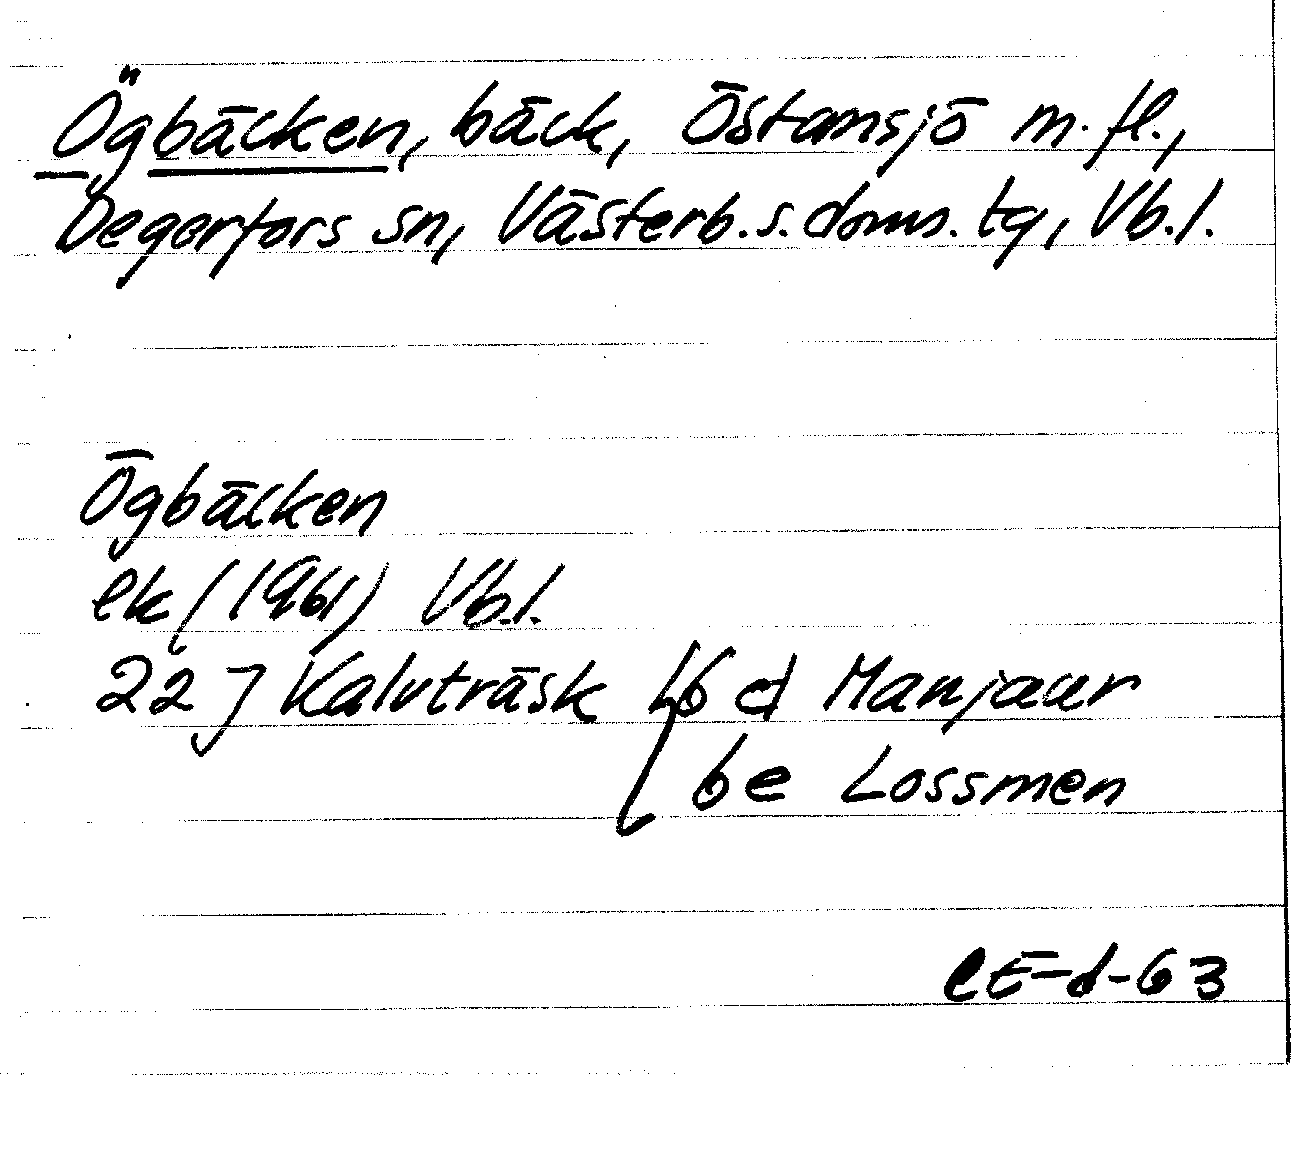 Ögbäcken, bäck, Östansjö m.fl.,
Degerfors sn, Västerb.s.doms.tg, Vb.l.
Ögbäcken
ek (1961) Vb.l.
22 J Kalvträsk 6 d Manjaur
6e Lossmen
CE-d-63